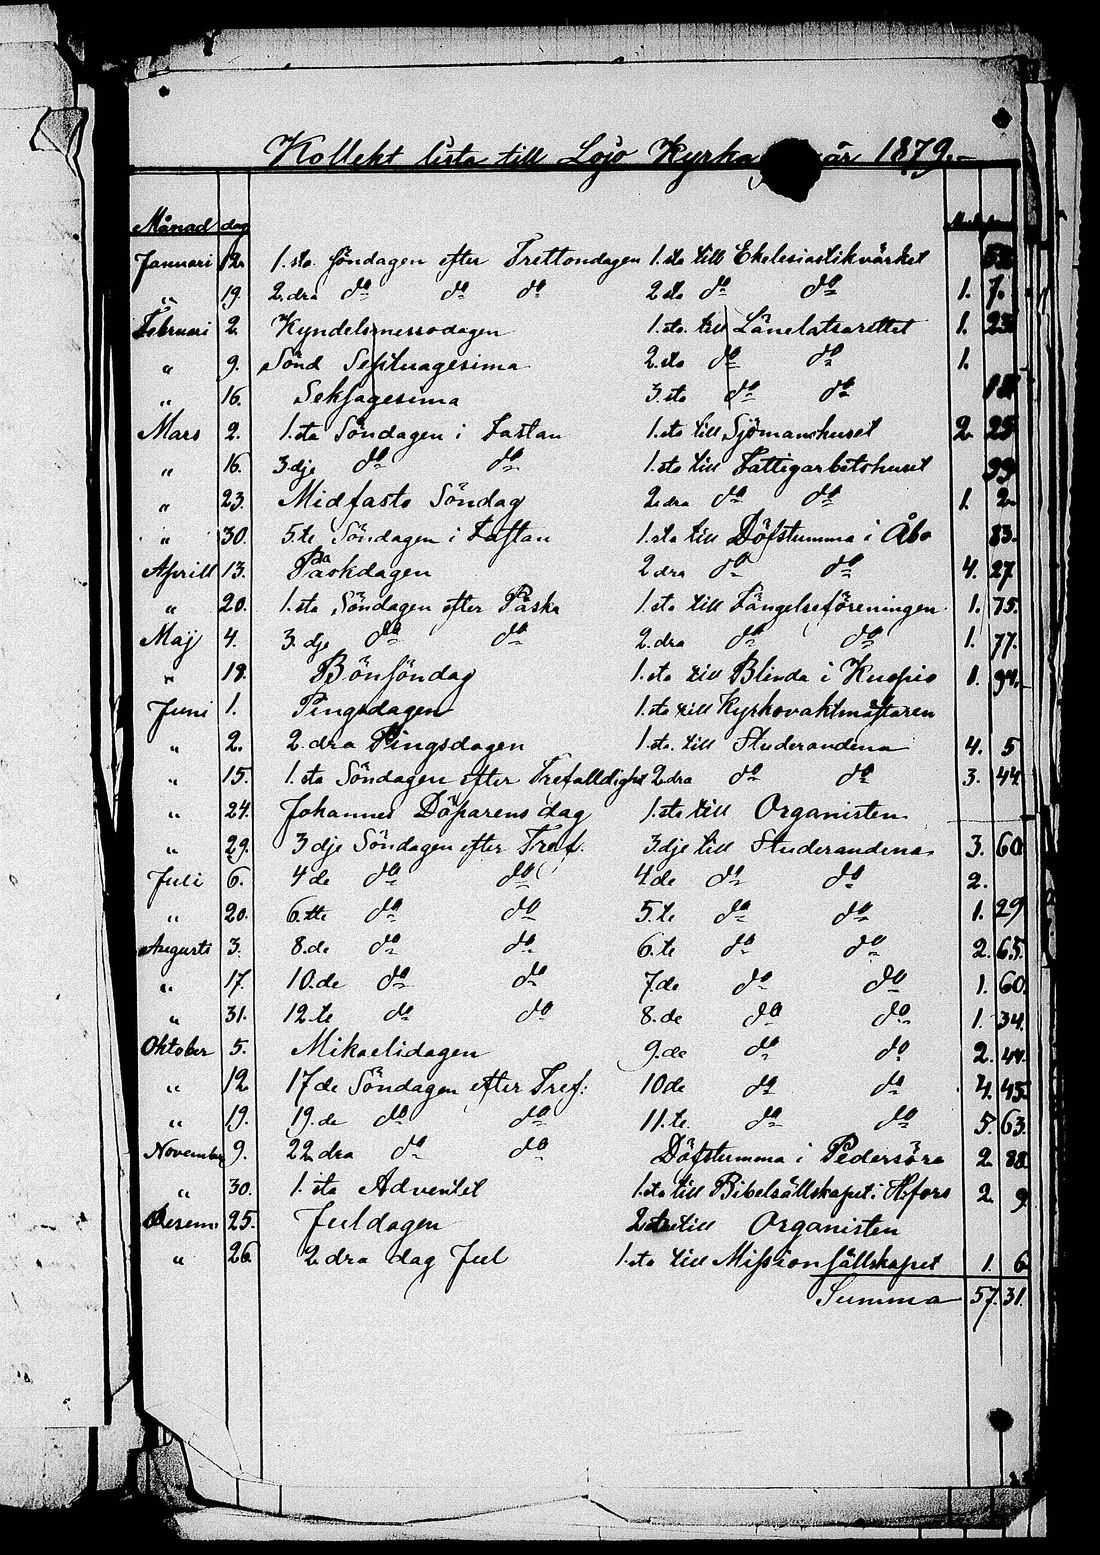 Kollekt lista till Lojo Kyrka år 1879.
Månad dag
Januari 12. 1.sta Söndagen efter Trettondagen 1.sta till Ekelesiastikvärket 52
" 19. 2.dra do do do 2.dra do do 1. 7.
Februari 2. Kyndelsmessodagen 1.sta till Länelatsarettet 1. 23
" 9. Sönd Septuagesima 2.dra do do 1.
" 16. Seksagesima 3.sta do do
Mars 2. 1.sta Söndagen i Fastan 1.sta till Sjömanshuset 2. 25
" 16. 3.dje do do 1.sta till Fattigarbetshuset 99
" 23. Midfasto Söndag 2.dra do do 1. 2.
" 30. 5.te Söndagen i Fastan 1.sta till Döfstumma i Åbo 83.
Aprill 13. Påskdagen 2.dra do do 4. 27
" 20. 1.sta Söndagen efter Påska 1.sta till Fängelseföreningen 1. 75.
Maj 4. 3.dje do do 2.dra do do 1. 77.
" 18. Bönsöndag 1.sta till Blinda i Kuopio 1. 94.
Juni 1. Pingsdagen 1.sta till Kyrkovaktmästaren
" 2. 2.dra Pingsdagen 1.sta till Studerandena 4. 5
" 15. 1.sta Söndagen efter Trefalldighet 2.dra do do 3. 44
" 24. Johannes Döparens dag 1.sta till Organisten
" 29. 3dje Söndagen efter Tref. 3dje till Studerandena 3. 60
Juli 6. 4de do do 4.de do do 2.
" 20. 6.tte do do 5.te do do 1. 29
Augusti 3. 8.de do do 6.te do do 2. 65.
" 17. 10.de do do 7.de do do 1. 60.
" 31. 12.te do do 8.de do do 1. 34.
Oktober 5. Mikaelidagen 9.de do do 2. 44.
" 12. 17de Söndagen efter Tref: 10de do do 4. 45.
" 19. 19.de do do 11.te. do do 5. 63.
November 9. 22.dra do do Döfstumma i Pedersöre 2. 88
" 30. 1.sta Adventet 1.sta till Bibelsällskapet i H.fors 2. 9
Desem: 25. Juldagen 2.dra till Organisten
" 26. 2.dra dag Jul 1.sta till Missionsällskapet 1. 6
Summa 57. 31.